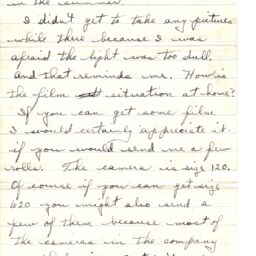 in the summer.
I didn't get to take any pictures
while there because I was
afraid the light was too dull.
And that reminds me. How is
the film situation at home?
If you can get some film
I would certainly appreciate it
if you would send me a few
rolls. The camera is size 120.
Of course if you can get size
620 you might also send a
few of them because most of
the cameras in the company